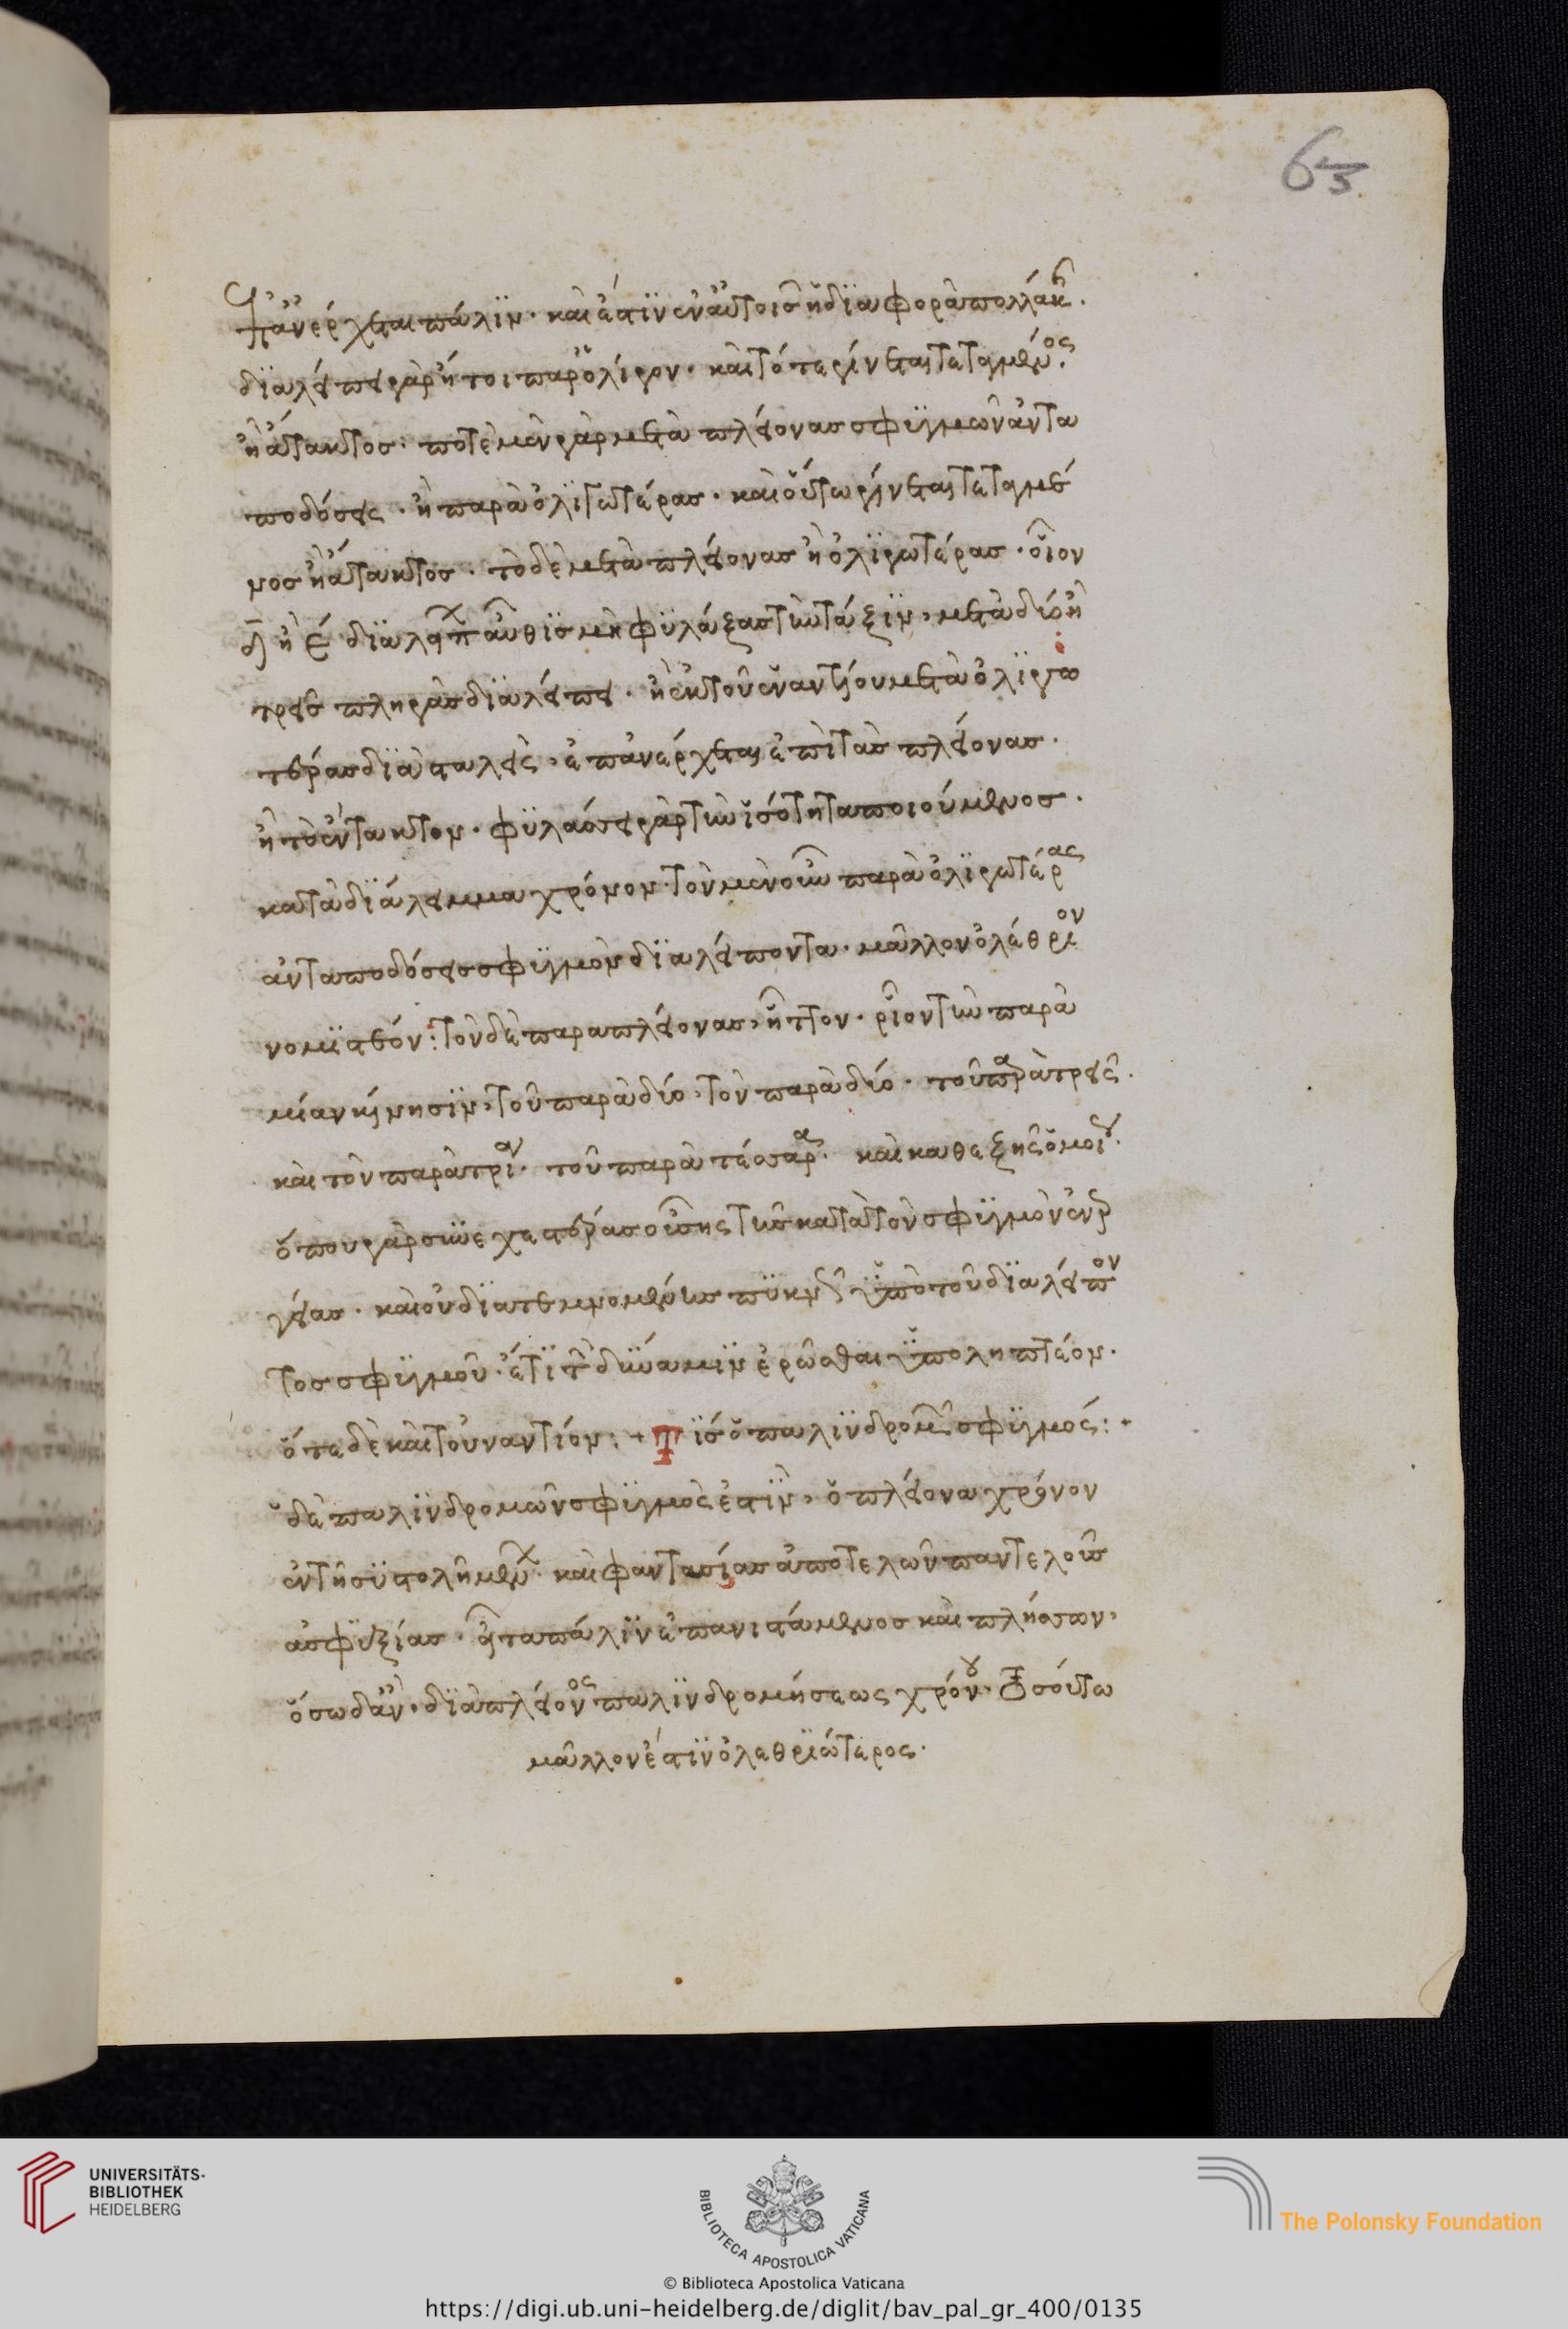 65
πανέρχεται πάλϊν· καὶ ἔστϊν ἐν αὐτοῖς ἡ δϊαφορὰ πολλάκ·
δϊαλείπει γὰρ ἤτοι παρ' ὀλίγον· καὶ τότε γίνεται τεταγμένος·
ἢ ἄτακτος· ποτὲ μὲν γὰρ μετὰ πλείονας σφϋγμῶν ἀντα
ποδόσεις· ἢ παρὰ ὀλϊγωτέρας· καὶ οὕτω γίνεται τεταγμέ
νος ἢ ἄτακτος· τὸ δὲ μετὰ πλείονας ἢ ὀλϊγωτέρας· οἷον
δ ἢ ε δϊαλιπ αὖθϊς μὴ φϋλάξας τὴν τάξϊν, μετὰ δύο ἢ
τρεῖς πληγὰς δϊαλείπει· ἢ ἐκ τοῦ ἐναντίου μετὰ ὀλϊγω
τέρας δϊαστολεὶς, ἐπανέρχεται ἐπὶ τὰς πλείονας·
ἢ τὸ εὔτακτον· φϋλάσσει γὰρ τὴν ἰσότητα ποιούμενος·
κατὰ δϊάλειμμα χρόνον· τὸν μὲν οὖν παρὰ ὀλϊγωτέρας
ἀνταποδόσεις σφϋγμὸν δϊαλείποντα· μᾶλλον ὀλέθριον
νομϊστέον: τὸν δὲ παρα πλείονας, ἧττον· οἷον τὴν παρὰ
μίαν κίνησϊν, τοῦ παρὰ δύο, τὸν παρὰ δύο· τοῦ παρὰ τρεῖς·
καὶ τὸν παρὰ τρία· τοῦ παρὰ τέσσαρα· καὶ καθεξῆς ὁμοίου·
ὅπου γὰρ συνεχεστέρας οὔσης τῆς κατὰ τὸν σφϋγμὸν ἐνερ
γείας· καὶ οὐ δϊατεμνομένης πϋκνῶς ὑπὸ τοῦ δϊαλείπον
τος σφϋγμοῦ· ἔτϊ τὴν δύναμϊν ἐρρῶσθαι ὑποληπτέον·
ὅτε δὲ καὶ τοὐναντίον: + Τϊς ὁ παλϊνδρομῶν σφϋγμός: +
ὁ δὲ παλϊνδρομῶν σφϋγμὸς ἐστϊν, ὁ πλείονα χρόνον
ἐν τῇ συστολῇ μένων· καὶ φαντασίας ἀποτελῶν παντελοῦς
ἀσφϋξίας· εἶτα πάλϊν ἐπανιστάμενος καὶ πλήσσων,
ὅσω δ' ἂν· δϊὰ πλείονος παλϊνδρομήσεως χρόνου· τοσούτω
μᾶλλον ἐστϊν ὀλεθρϊώτερος·
UNIVERSITÄTS-
BIBLIOTHEK
HEIDELBERG
BIBLIOTECA APOSTOLICA VATICANA
The Polonsky Foundation
© Biblioteca Apostolica Vaticana
https://digi.ub.uni-heidelberg.de/diglit/bav_pal_gr_400/0135